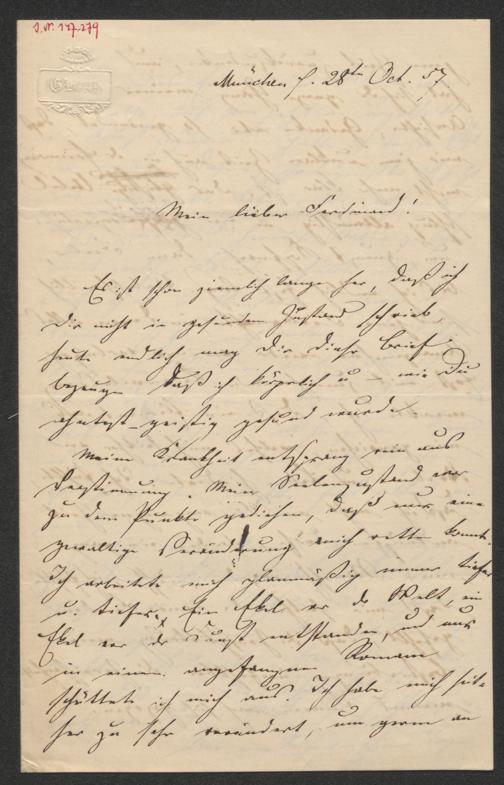 J. Nr. 147.279
München d. 28ten Oct. 57.
Mein lieber Ferdinand!
Es ist schon ziemlich lange her, daß ich
Dir nicht in gesunden Zustand schrieb,
heute endlich mag Dir dieser Brief
bezeugen daß ich körperlich u – wie Du
ahntest – geistig gesund wurde.
Meine Krankheit entsprang rein aus
Verstimmung. Mein Seelenzustand war
zu dem Punkte gediehen, daß nur eine
gewaltige Veränderung mich retten konnte.
Ich arbeitete mich planmäßig immer tiefer
u. tiefer, Ein Ekel vor der Welt, ein
Ekel vor der Kunst entstanden, und nur
in einem angefangenen Romane
schüttete ich mich aus. Ich habe mich seit-
her zu sehr verändert, um gerne an